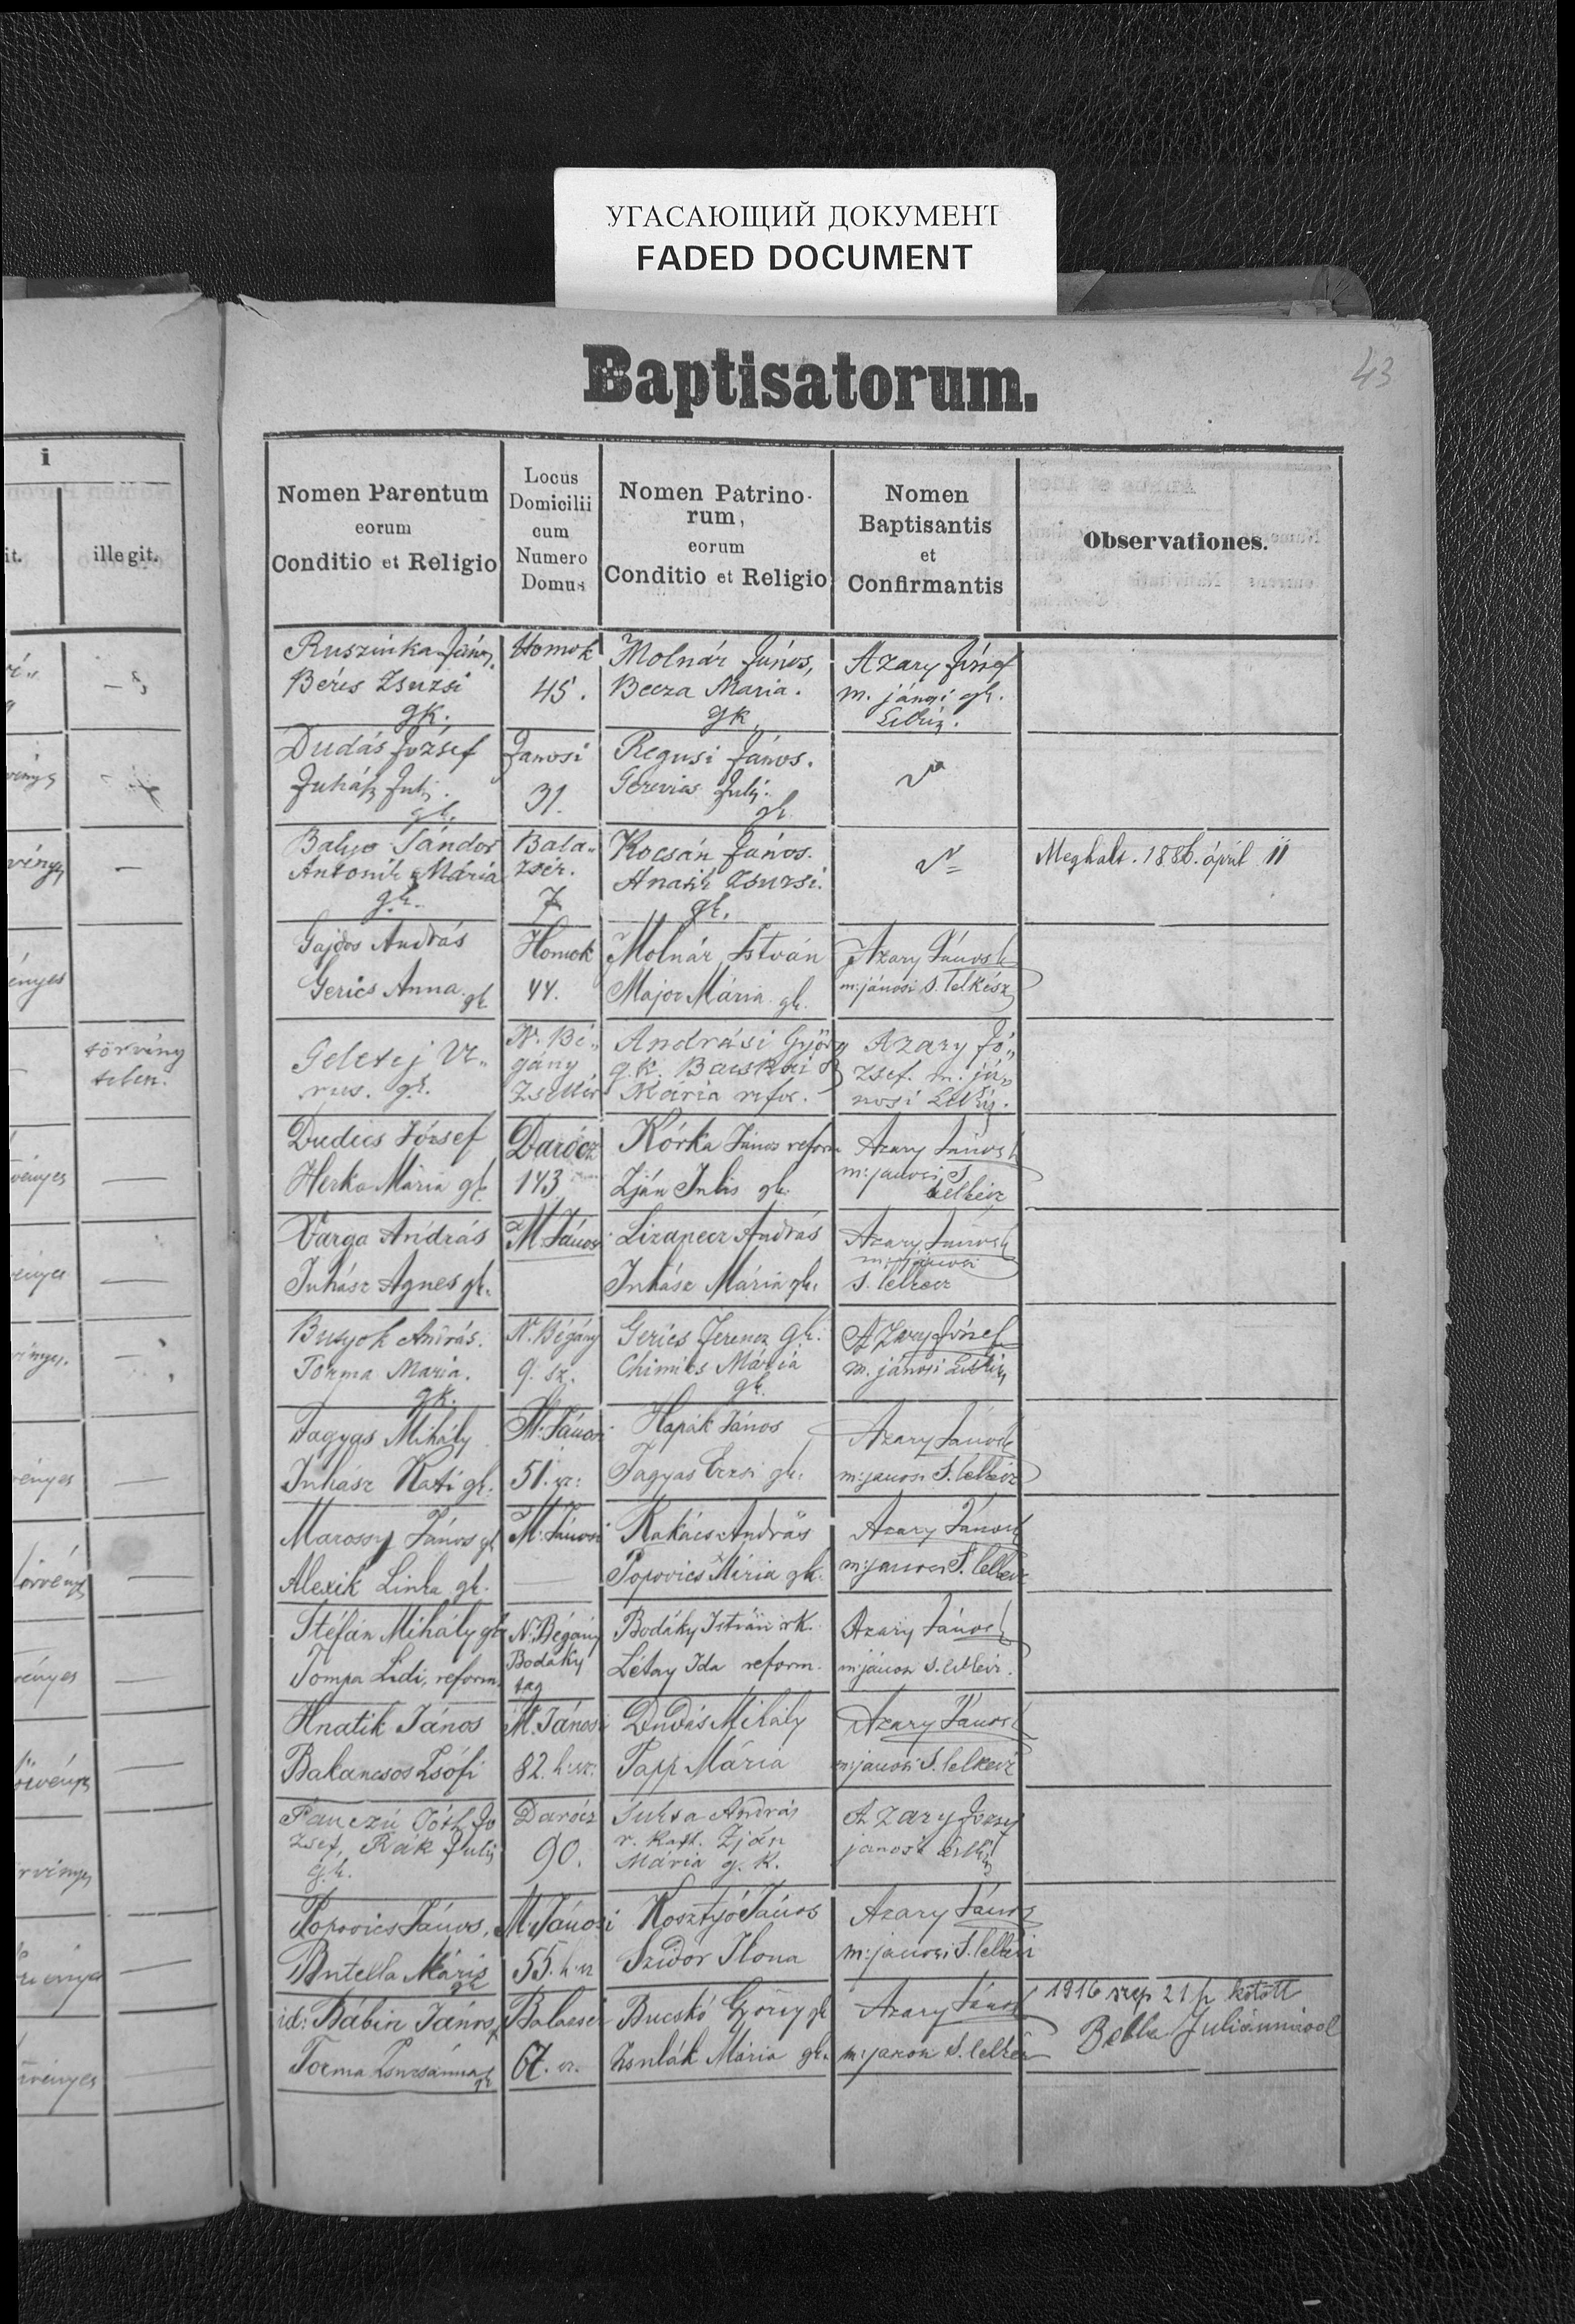 УГАСАЮЩИЙ ДОКУМЕНТ
FADED DOCUMENT
43
Baptisatorum.
i
it.
illegit.
Nomen Parentum
eorum
Conditio et Religio
Locus
Domicilii
cum
Numero
Domus
Nomen Patrino-
rum,
eorum
Conditio et Religio
Nomen
Baptisantis
et
Confirmantis
Observationes.
törvény
telen.
Ruszinka János
Béres Zsuzsi
gk.
Homok
45.
Molnár János,
Becza Maria.
gk
Azary József
m. jánosi gk.
Lelkész.
Dudás József
Juhász Juli.
gk.
Janosi
31.
Regusi János.
Gerevics Juli.
gk
Balyo Sándor
Antonik Mária
gk.
Bala-
zsér.
7
Kocsán János.
Hnatik Zsuzsi.
gk.
Meghalt. 1886. ápril 11
Gajdos András
Gerics Anna gk
Homok
44.
Molnár István
Major Mária gk.
Azary János
m:jánosi s. lelkész
Geletej Ve-
rus. gk.
N. Bé-
gány
Zsellér
Andrási György
g.k. Bacskai
Mária refor.
Azary Jó-
zsef. m. já-
nosi Lelkész.
Dudics József
Herka Mária gk.
Darócz
143
Kórka János reform
Zján Julis gk.
Azary János
m:janosi S.
lelkész
Varga András
Juhász Agnes gk.
M. Jánosi
Lizanecz András
Juhász Mária gk.
Azary János
m:jánosi
S. lelkész
Butyok András.
Torma Maria.
gk.
N. Bégány
9. sz.
Gerics Ferencz gk.
Chimics Mária
gk.
Azary József
m. jánosi Lelkész
Fagyas Mihály
Juhász Kati gk.
M: Jánosi
51. sz:
Hapák János
Fagyas Erzsi gk.
Azary János
m:janosi S. lelkész
Marossy János gk
Alexik Linka gk.
M: Jánosi
Rakács András
Popovics Mária gk.
Azary János
m:janosi S. lelkész
Stéfán Mihály gk
Tompa Lidi, reform.
N. Bégány
Bodaky
tag
Bodáky István rk.
Létay Ida reform.
Azary János
m:jánosi S. lelkész.
Hnatik János
Bakancsos Zsófi
M. Jánosi
82. h:sz.
Dudás Mihály
Papp Mária
Azary János
m:janosi S. lelkész
Panczú Tóth Jó
zsef, Rák Juli
g.k.
Darócz
90.
Suksa András
r. kath. Zján
Mária g. k.
Azary József
janosi Lelkész
Popovics János,
Butella Máris
gk
M. Jánosi
55. h:sz
Kosztyó János
Szidor Ilona
Azary János
m:janosi S. lelkész
id: Bábin János
Torma Zsuzsánna
gk
Balazsér
67. sz.
Bucskó György gk
Zsnlák Mária gk.
Azary János
m:janosi S. lelkész
1916 szep 21 h kötött
Bella Juliánnával